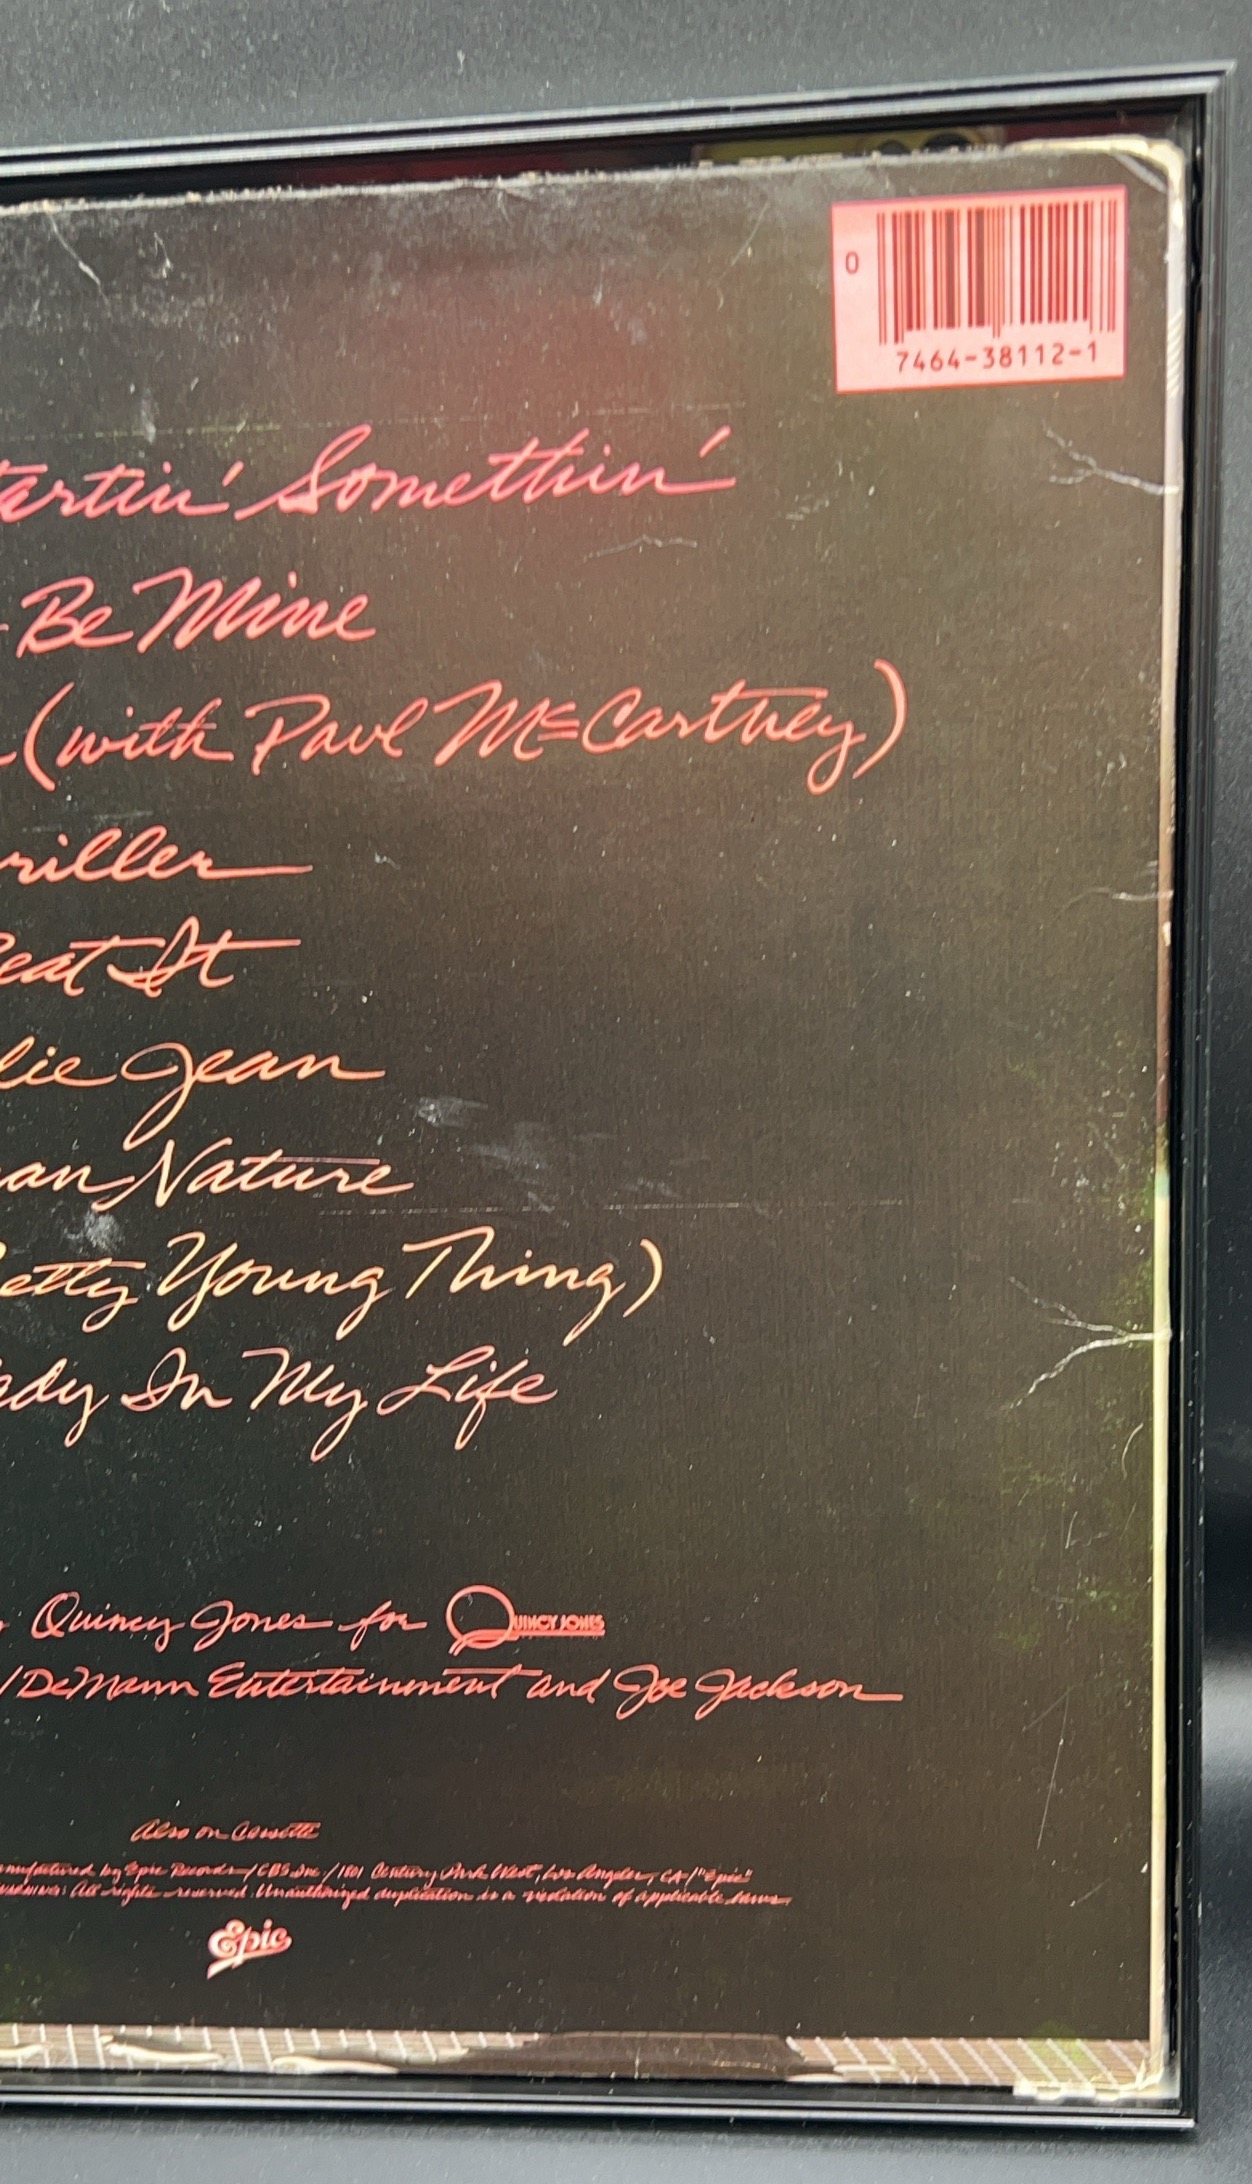 0
7464-38112-1
tartin' Somethin'
Be Mine
(with Paul McCartney)
riller
eat It
lie Jean
an Nature
etty Young Thing)
ady In My Life
Quincy Jones for QUINCY JONES
/DeMann Entertainment and Joe Jackson
Also on Cassette
nufactured by Epic Records/CBS Inc./1801 Century Park West, Los Angeles, CA/"Epic"
All rights reserved. Unauthorized duplication is a violation of applicable laws.
Epic